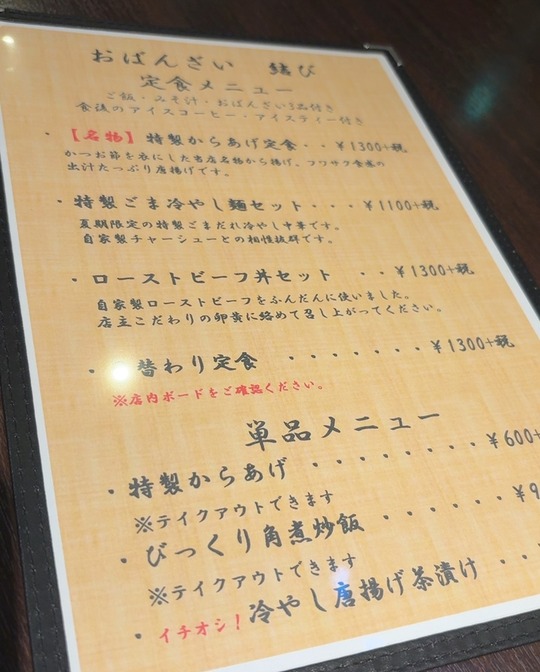 おばんざい 結び
定食メニュー
ご飯・みそ汁・おばんざい3品付き
食後のアイスコーヒー・アイスティー付き
・【名物】特製からあげ定食・・¥1300+税
かつお節を衣にした当店名物から揚げ。フワサク食感の
出汁たっぷり唐揚げです。
・特製ごま冷やし麺セット・・・¥1100+税
夏期限定の特製ごまだれ冷やし中華です。
自家製チャーシューとの相性抜群です。
・ローストビーフ丼セット ・・¥1300+税
自家製ローストビーフをふんだんに使いました。
店主こだわりの卵黄に絡めて召し上がってください。
・替わり定食 ・・・・・・・¥1300+税
※店内ボードをご確認ください。
単品メニュー
・特製からあげ ・・・・・・・¥600+
※テイクアウトできます
・びっくり角煮炒飯 ・・・・・・
※テイクアウトできます
・イチオシ!冷やし唐揚げ茶漬け ・・